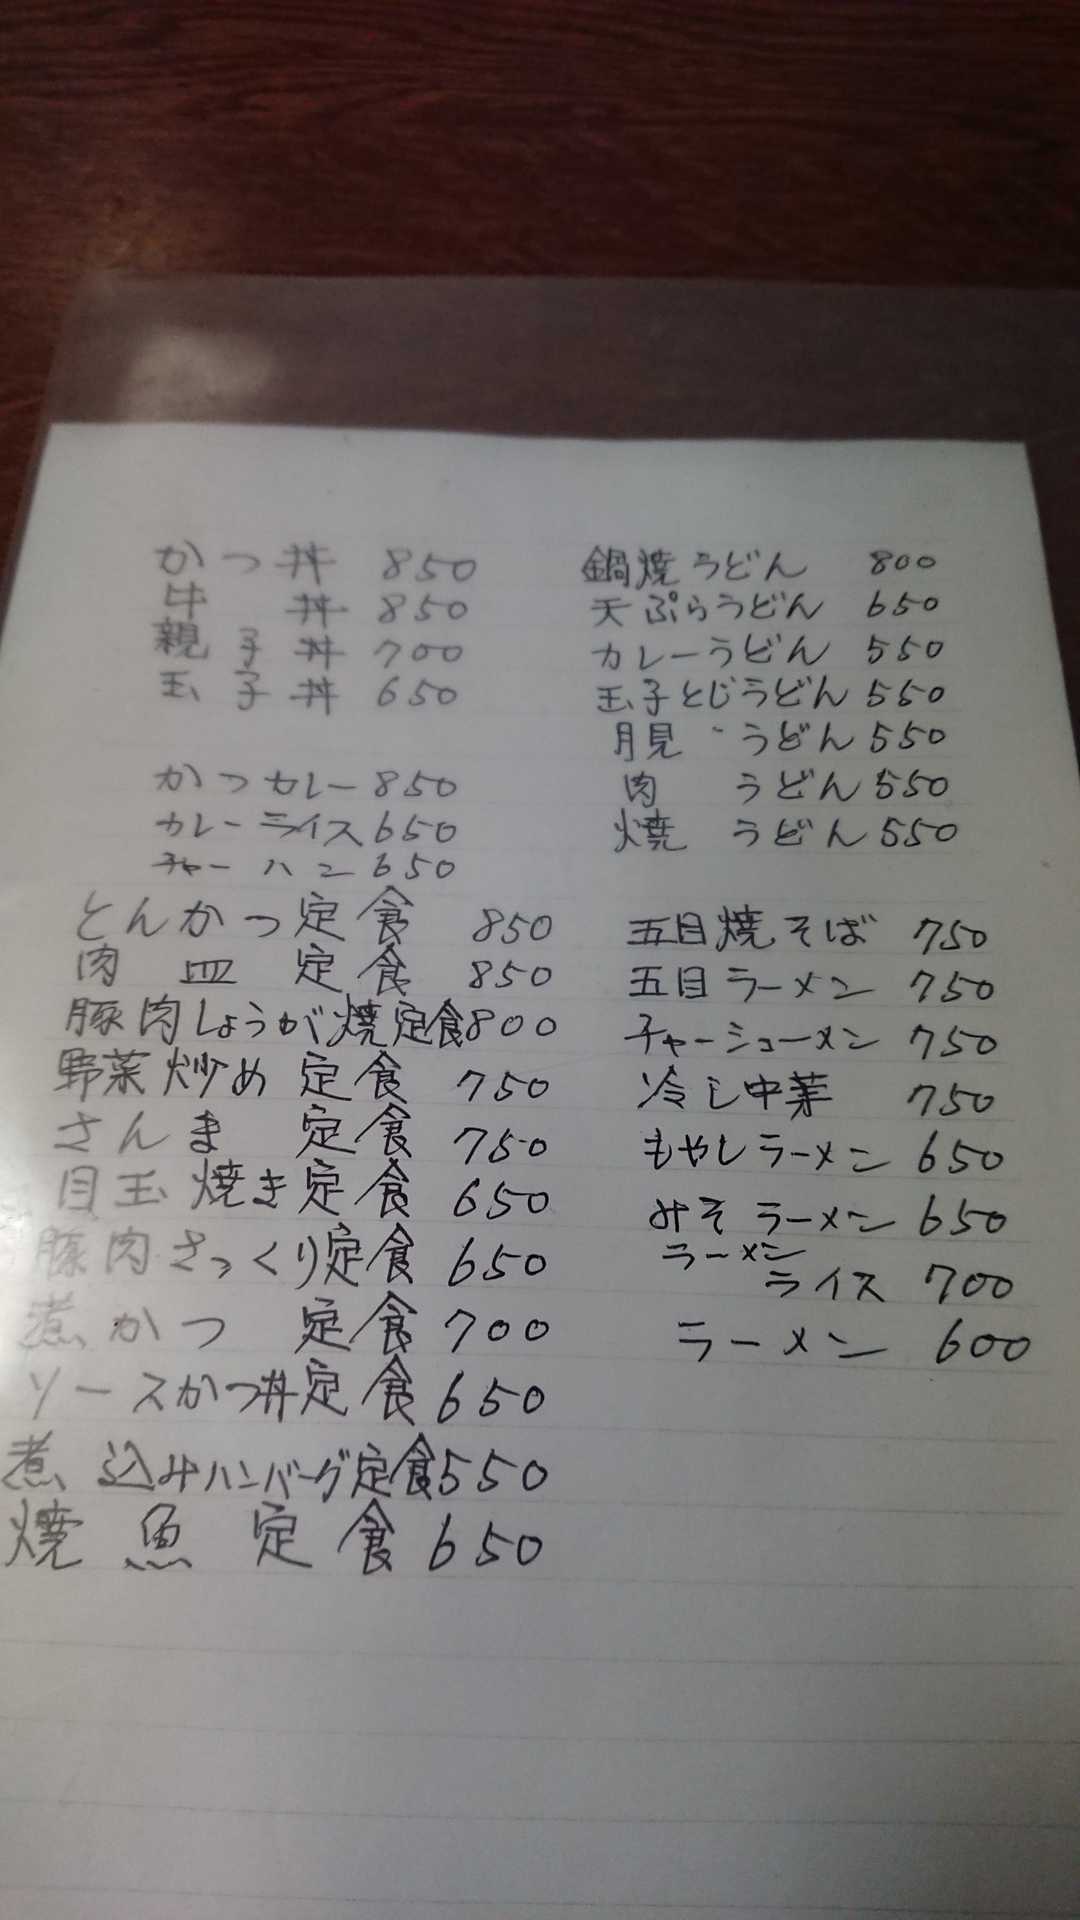 かつ丼 850
牛丼 850
親子丼 700
玉子丼 650
かつカレー 850
カレーライス 650
チャーハン 650
とんかつ定食 850
肉皿定食 850
豚肉しょうが焼定食 800
野菜炒め定食 750
さんま定食 750
目玉焼き定食 650
豚肉さっくり定食 650
煮かつ定食 700
ソースかつ丼定食 650
煮込みハンバーグ定食 550
焼魚定食 650
鍋焼うどん 800
天ぷらうどん 650
カレーうどん 550
玉子とじうどん 550
月見うどん 550
肉うどん 550
焼うどん 550
五目焼そば 750
五目ラーメン 750
チャーシューメン 750
冷し中華 750
もやしラーメン 650
みそラーメン 650
ラーメン
ライス 700
ラーメン 600